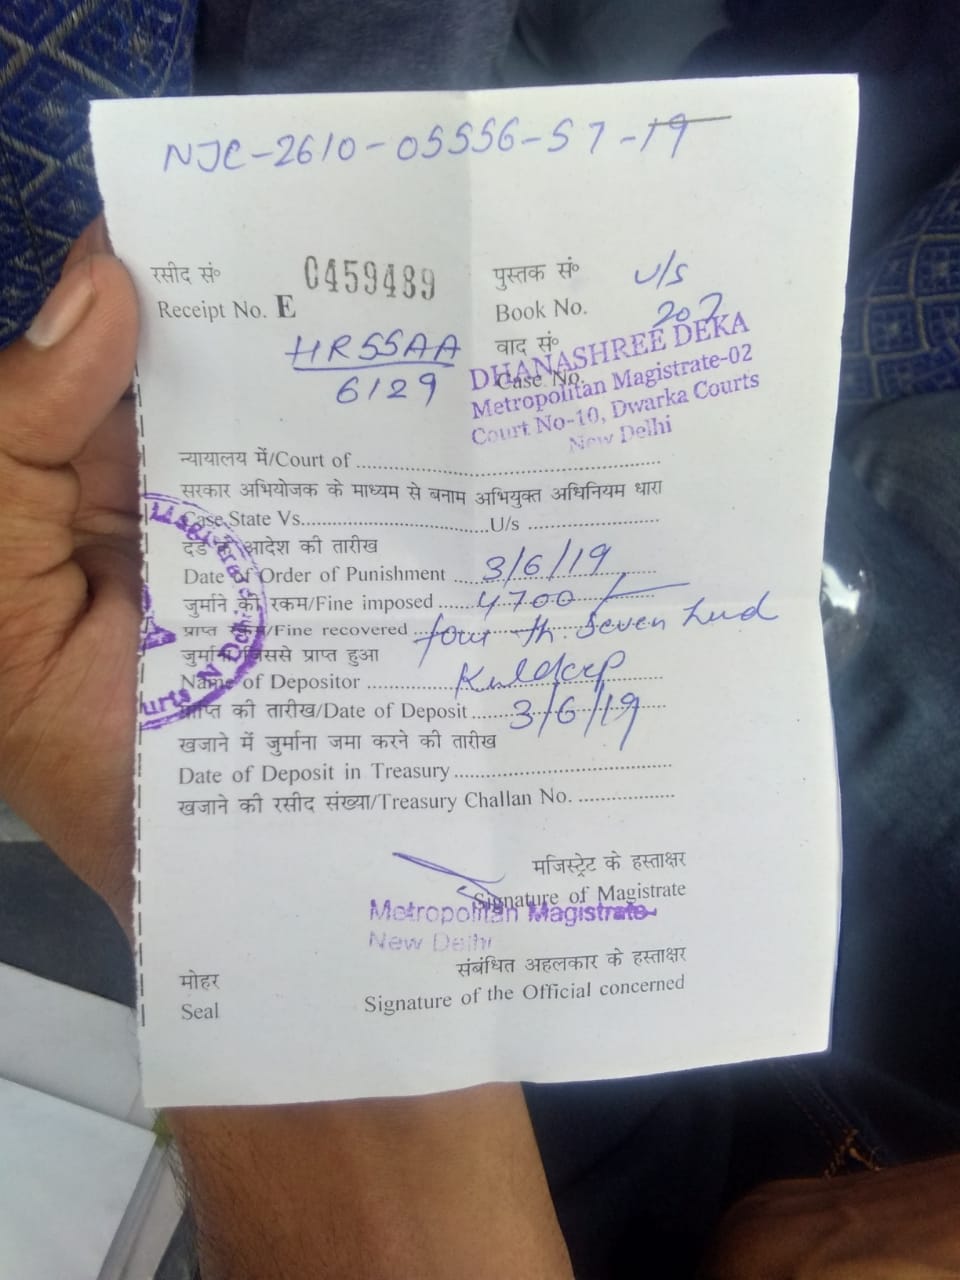 NJC-2610-05556-57-19
रसीद सं० 0459489 पुस्तक सं० u/s
Receipt No. E Book No. 202
HR55AA वाद सं०
6129 Case No.
DHANASHREE DEKA
Metropolitan Magistrate-02
Court No-10, Dwarka Courts
New Delhi
न्यायालय में/Court of
सरकार अभियोजक के माध्यम से बनाम अभियुक्त अधिनियम धारा
Case State Vs. U/s
दंड के आदेश की तारीख
Date of Order of Punishment 3/6/19
जुर्माने की रकम/Fine imposed 4700/-
प्राप्त रकम/Fine recovered four th. Seven hud
जुर्माना जिससे प्राप्त हुआ
Name of Depositor Kuldeep
प्राप्ति की तारीख/Date of Deposit 3/6/19
खजाने में जुर्माना जमा करने की तारीख
Date of Deposit in Treasury
खजाने की रसीद संख्या/Treasury Challan No.
मजिस्ट्रेट के हस्ताक्षर
Signature of Magistrate
Metropolitan Magistrate
New Delhi
संबंधित अहलकार के हस्ताक्षर
मोहर
Signature of the Official concerned
Seal